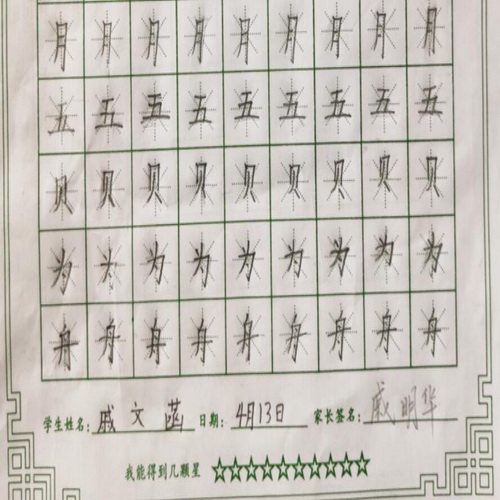 月 月 月 月 月 月 月 月 月
五 五 五 五 五 五 五 五 五
贝 贝 贝 贝 贝 贝 贝 贝 贝
为 为 为 为 为 为 为 为 为
舟 舟 舟 舟 舟 舟 舟 舟 舟
学生姓名: 戚文菡 日期: 4月13日 家长签名: 戚明华
我能得到几颗星 ☆☆☆☆☆☆☆☆☆☆